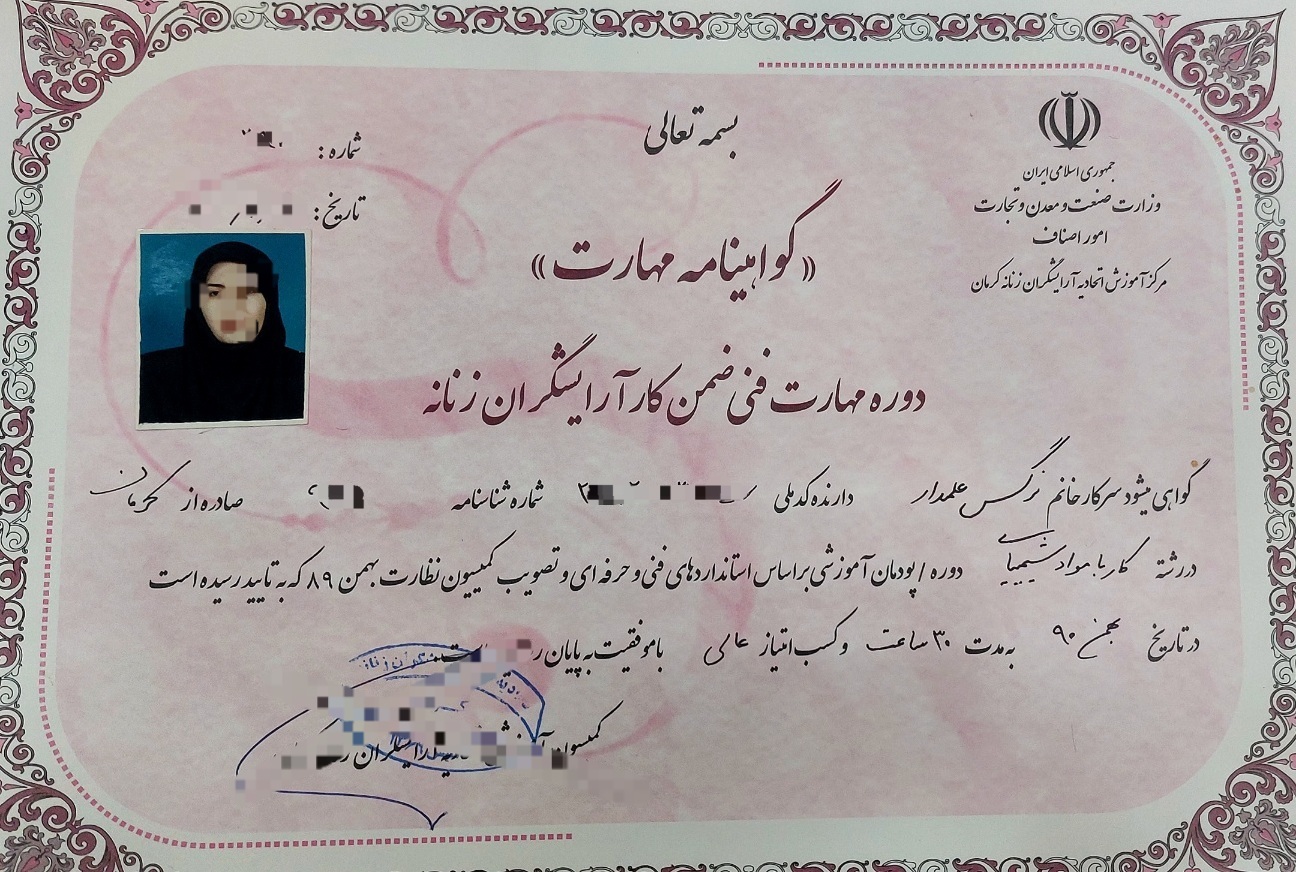 بسمه تعالی
جمهوری اسلامی ایران
وزارت صنعت و معدن و تجارت
امور اصناف
مرکز آموزش اتحادیه آرایشگران زنانه کرمان
شماره :
تاریخ :
«گواهینامه مهارت»
دوره مهارت فنی ضمن کار آرایشگران زنانه
گواهی میشود سرکار خانم نرگس علمدار دارنده کد ملی شماره شناسنامه صادره از کرمان
در رشته کار با مواد شیمیایی دوره / پودمان آموزشی براساس استانداردهای فنی و حرفه ای و تصویب کمیسیون نظارت بهمن ۸۹ که به تایید رسیده است
در تاریخ بهمن ۹۰ به مدت ۳۰ ساعت و کسب امتیاز عالی با موفقیت به پایان
کمیسیون
آرایشگران